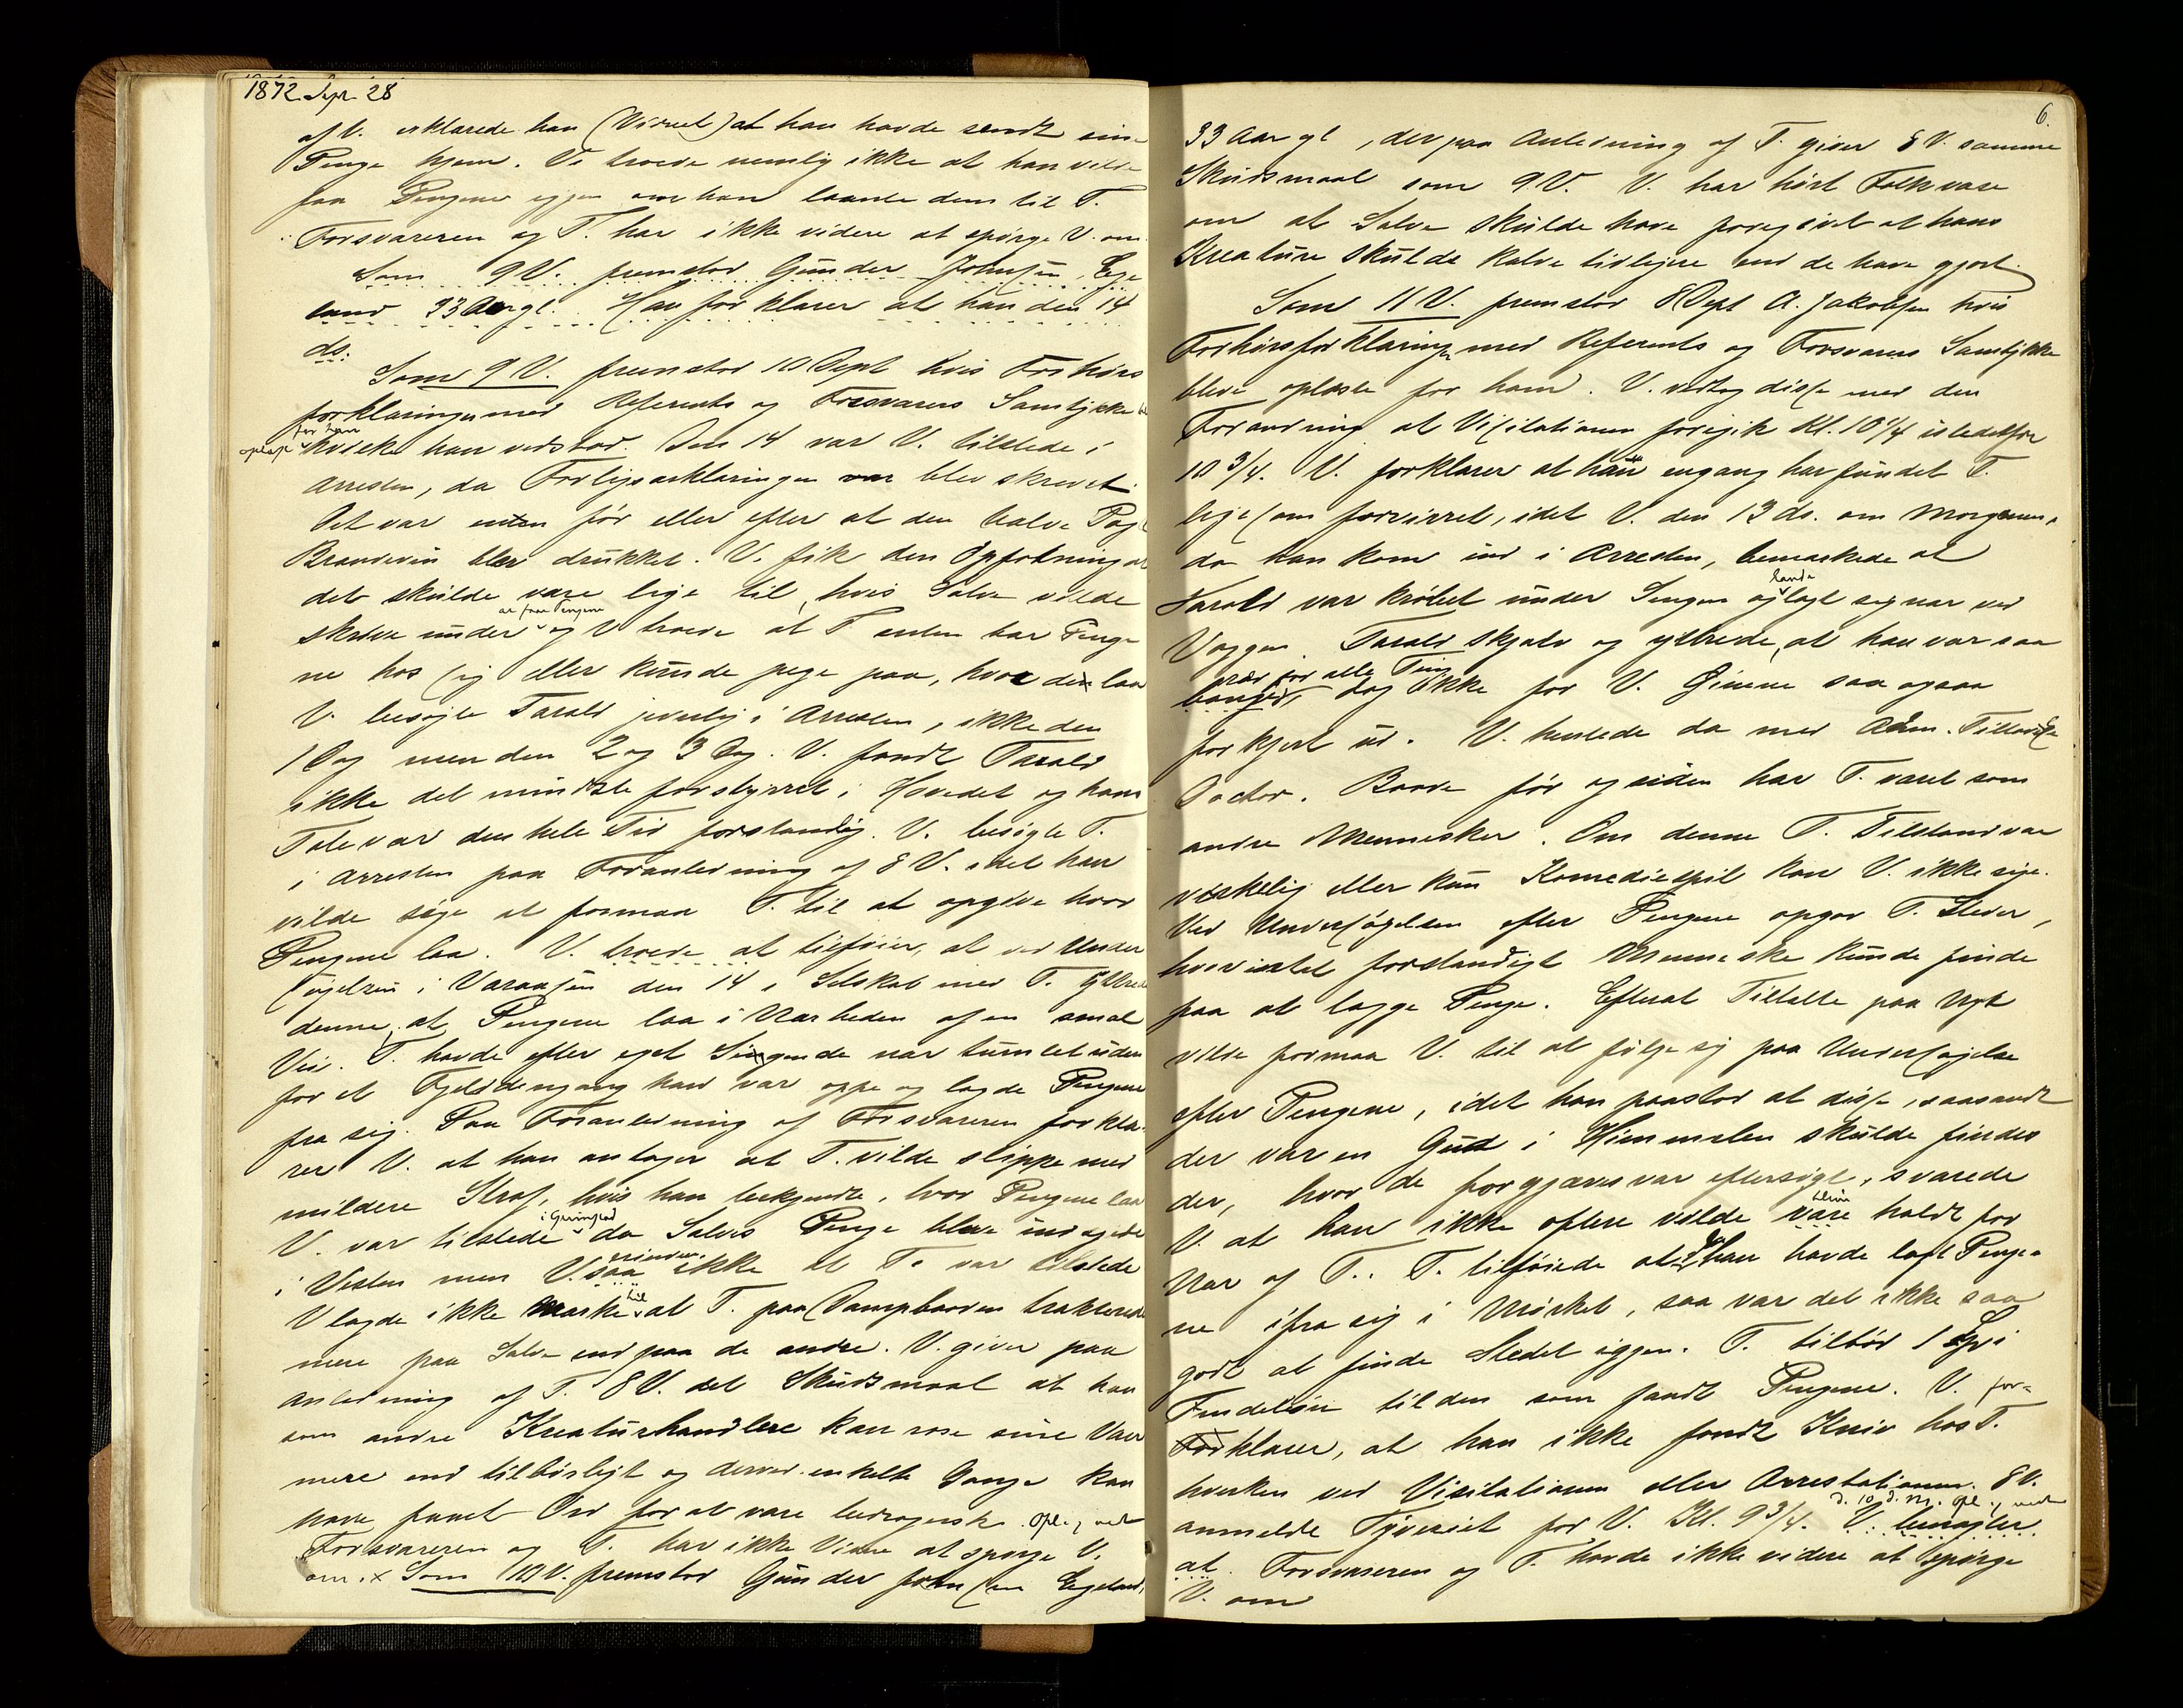 1872 Sept 28
af V. erklærede han (Vidnet) at han havde sendt sine
Penge hjem. Vi troede nemlig ikke at han vilde
faa Pengene igjen om han laante dem til T.
Forsvareren og T. har ikke videre at spørge V. om.
Som 9 V. fremstod Gunder Johnsen Ege
land 33 Aar gl. Han forklarer at han den 14
ds.
Som 9 V. fremstod 10 Dept hvis Forhørs
forklaringer med Referents og Forsvarers Samtykke
oplæst for ham hvilke han vedstod. Den 14 var V. tilstede i
Arresten, da Forligserklæringen var blev skrevet.
Det var enten før eller efter at den halve Pægl
Brændeviin blev drukket. V. fik den Opfatning at
det skulde være lige til, hvis Salve vilde
skrive under at faa Pengene og V troede at T enten har Penge
ne hos sig eller kunde pege paa, hvor den laa
V. besøgte Tarald jevnlig i Arresten, ikke den
1 Dag men den 2 og 3 Dag. V. fandt Tarald
ikke det mindste forstyrret i Hovedet og hans
Tale var den hele Tid forstandig. V. besøgte T.
i Arresten paa Foranledning af 8 V. idet han
vilde søge at formaa T. til at opgive hvor
Pengene laa. V. troede at tilføier, at ved Under
søgelsen i den 14 i Selskab med T. yttrede
denne, at Pengene laa i Nærheden af en smal
Vei. T. havde efter eget Sigende nær tumlet uden
for et Fjeld dengang han var oppe og lagde Pengene
fra sig. Paa Foranledning af Forsvareren forkla
rer V. at han antager at T. vilde slippe med
mildere Straf, hvis han bekjendte, hvor Pengene laa
V. var tilstede da Salves Penge blev indsyede
i Vesten men V. saa erindrer ikke at T. var tilstede
V lagde ikke Mærke til at T. paa Dampbaaden trakterede
mere paa Salve end paa de andre. V. giver paa
Anledning af T. 8 V. det Skudsmaal at han
som andre Kreaturhandlere kan rose sine Varer
mere end tilbørligt og derved enkelte Gange kan
have faaet Ord for at være bedragersk. Opl., ved
Forsvareren og T. har ikke videre at spørge V.
om. x Som 10 V. fremstod Gunder Johnsen Egeland,
6.
33 Aar gl, der paa Anledning af T. giver 8 V. samme
Skudsmaal som 9 V. V. har hørt Folk være
om at Salve skulde have foregivet at hans
Kreature skulde kalve tidligere end de have gjort.
Som 11 V. fremstod 8 Dept A. Jakobsen hvis
Forhørsforklaringer med Referents og Forsvarers Samtykke
bleve oplæste for ham. V. vedtog disse med den
Forandring at Visitationen foregik Kl. 10 1/4 istedetfor
10 3/4. V. forklarer at han engang har fundet T.
ligesom forvirret, idet V. den 13 ds. om Morgenen,
da han kom ind i Arresten, bemærkede at
Tarald var krøbet under Sengen og havde lagt sig nær ved
Væggen. Tarald skjalv og yttrede, at han var saa
bange ræd for alle Ting, dog ikke for V. Øinene saa ogsaa
forkjert ud. V. hentede da med Adm. Tilladelse
Doctor. Baade før og siden har T. været som
andre Mennesker. Om denne T. Tilstand var
virkelig eller kun Komediespil kan V. ikke sige.
Ved Undersøgelsen efter Pengene opgav T. Steder,
hvor intet forstandigt Menneske kunde finde
paa at lægge Penge. Efterat Tiltalte paa Nyt
vilde formaa V. til at følge sig paa Undersøgelse
efter Pengene, idet han paastod at disse, saasandt
der var en Gud i Himmelen skulde findes
der, hvor de forgjæves var eftersøgt, svarede
V. at han ikke oftere vilde være blive holdt for
Nar af T.. T. tilføiede at han havde lagt Penge
ne ifra sig i Mørket, saa var det ikke saa
godt at finde Stedet igjen. T. tilbød 1 Spd i
Findeløn til den som fandt Pengene. V. for=
Forklarer, at han ikke fandt Kniv hos T.
hverken ved Visitationen eller Arrestationen. 8 V.
anmeldte Tyveriet for V. Kl. 9 3/4. d. 10 d. M. Opl., vedt. V. benægter
at. Forsvareren og T. havde ikke videre at spørge
V. om